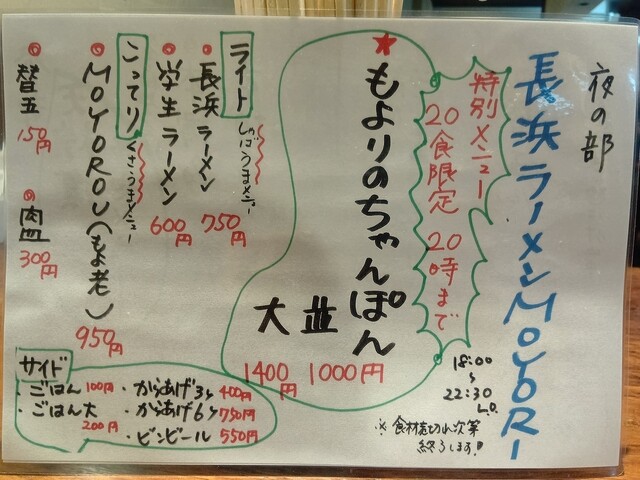 夜の部
長浜ラーメンMOYORI
18:00
〜
22:30
L.O.
※食材売切れ次第
終了します!
特別メニュー
20食限定 20時まで
★もよりのちゃんぽん
並 1000円
大 1400円
ライト
しゃばうまメニュー
長浜ラーメン 750円
学生ラーメン 600円
こってり
くさうまメニュー
MOYOROU(もよ老) 950円
替玉 150円
肉皿 300円
サイド
・ごはん 100円
・ごはん大 200円
・からあげ3ヶ 400円
・からあげ6ヶ 750円
・ビンビール 550円